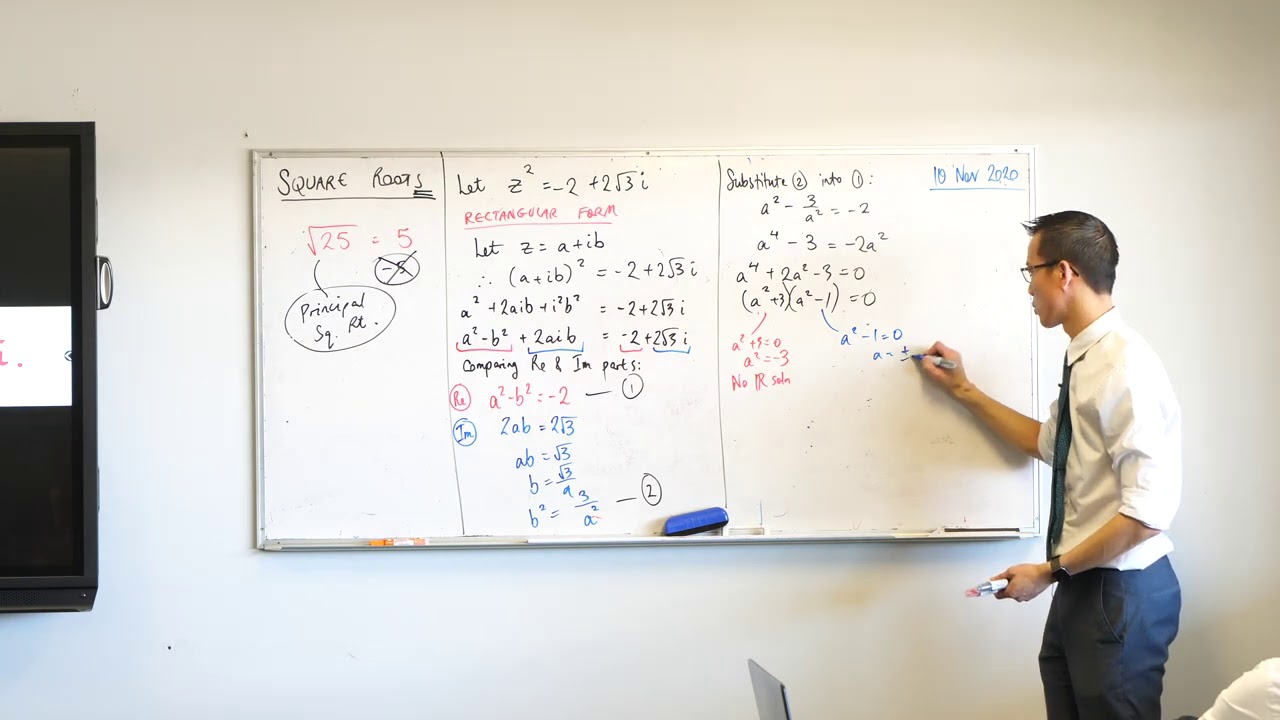 i.
SQUARE ROOTS
√25 = 5
-5
Principal
Sq. Rt.
Let z² = -2 + 2√3 i
RECTANGULAR FORM
Let z = a + ib
∴ (a+ib)² = -2 + 2√3 i
a² + 2aib + i²b² = -2 + 2√3 i
a² - b² + 2aib = -2 + 2√3 i
Comparing Re & Im parts:
Re a² - b² = -2 — ①
Im 2ab = 2√3
ab = √3
b = √3/a
b² = 3/a² — ②
Substitute ② into ①:
a² - 3/a² = -2
a⁴ - 3 = -2a²
a⁴ + 2a² - 3 = 0
(a² + 3)(a² - 1) = 0
a² + 3 = 0
a² = -3
No ℝ soln
a² - 1 = 0
a = ±
10 Nov 2020